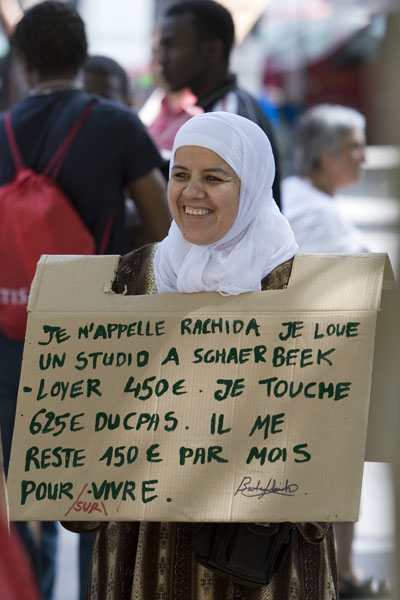 JE M'APPELLE RACHIDA JE LOUE
UN STUDIO A SCHAERBEEK
- LOYER 450€. JE TOUCHE
625€ DUCPAS. IL ME
RESTE 150€ PAR MOIS
POUR /SUR/ VIVRE.
TIS